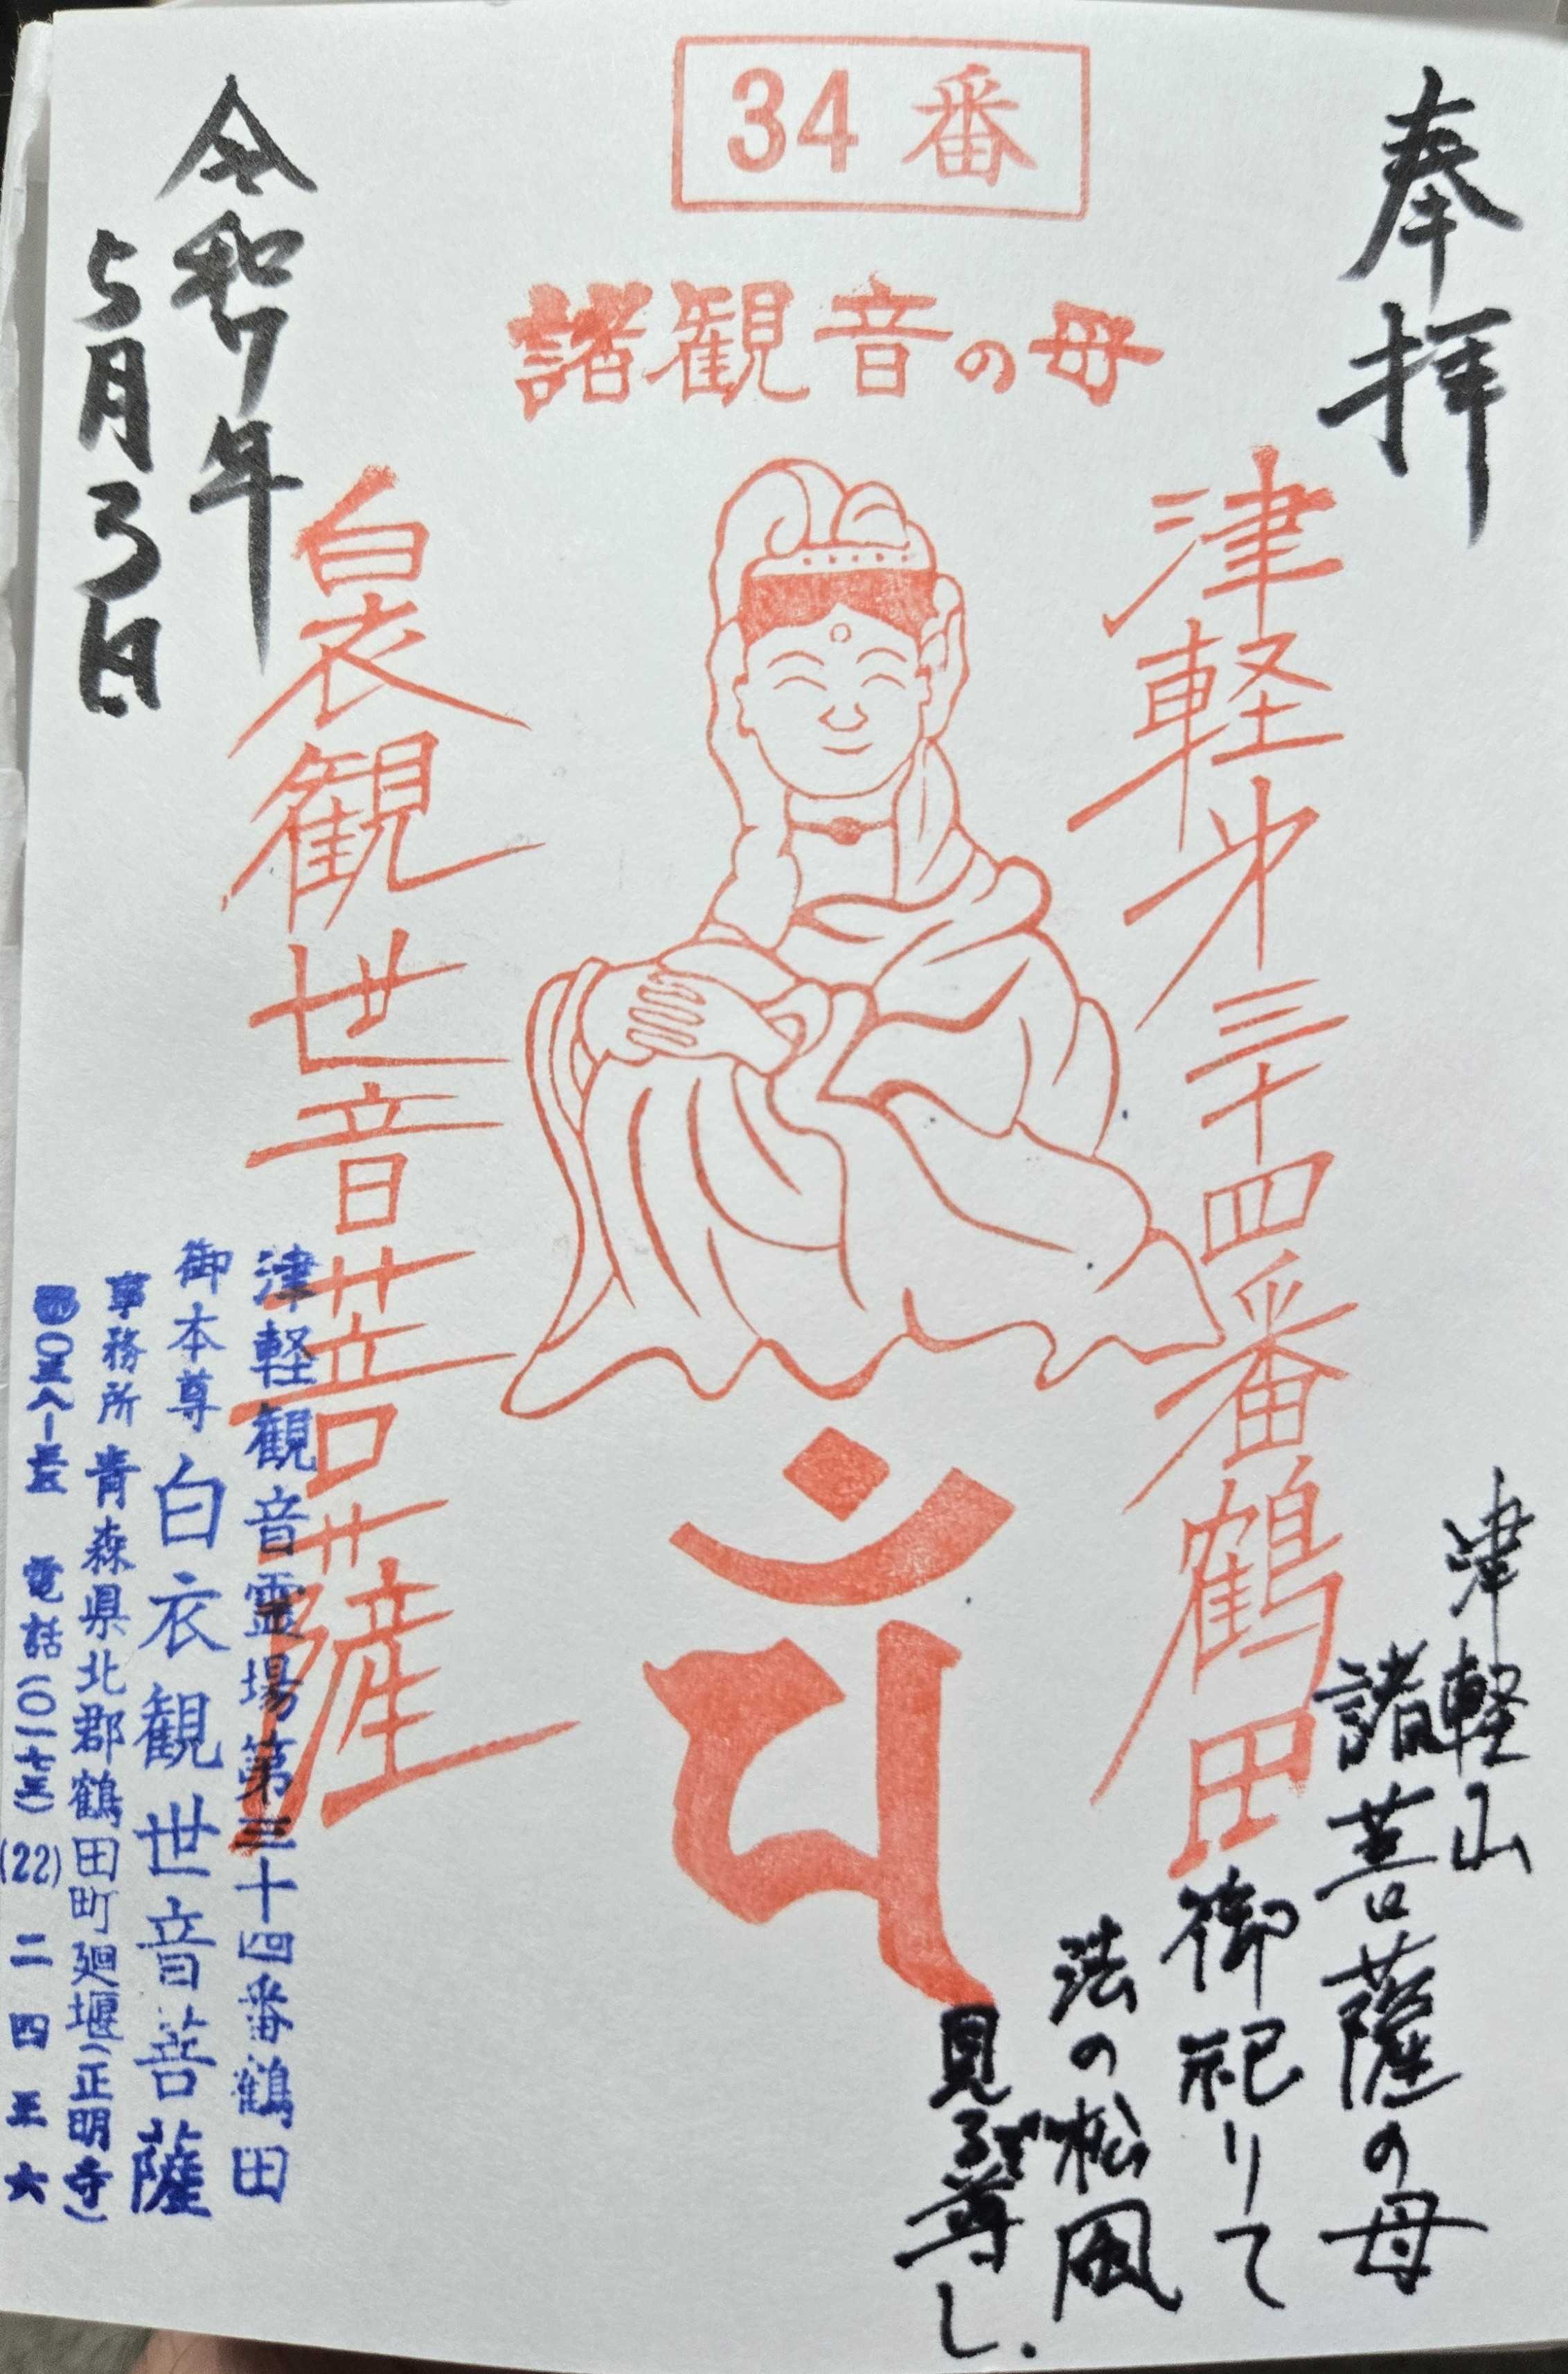 34番
諸観音の母
奉拝
津軽㐧三十四番鶴田
津軽山
諸菩薩の母
御祀りて
法の松風
尊し.
白衣観世音菩薩
令和7年
5月3日
津軽観音霊場第三十四番鶴田
御本尊 白衣観世音菩薩
事務所 青森県北郡鶴田町廻堰(正明寺)
電話(〇一七三)(22)二四三六